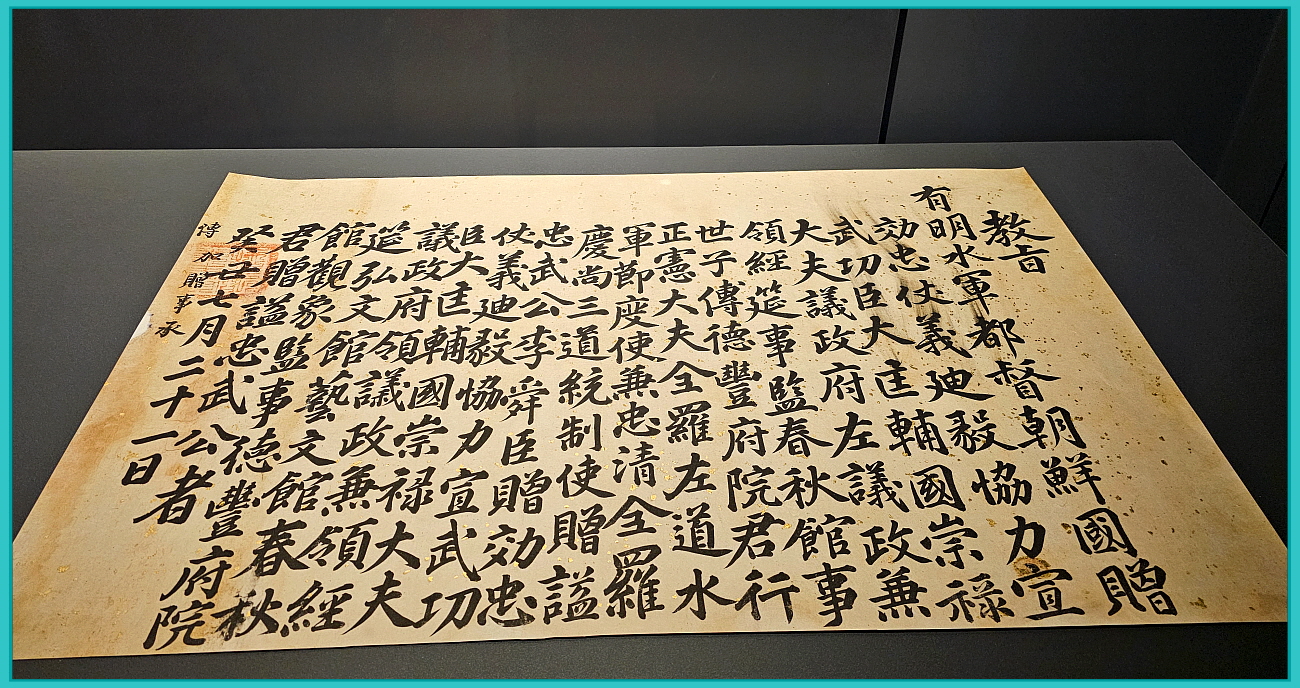 教旨
有明水軍都督朝鮮國贈
効忠仗義迪毅協力宣
武功臣大匡輔國崇禄
大夫議政府左議政兼
領經筵事監春秋館事
世子傅德豐府院君行
正憲大夫全羅左道水
軍節度使兼忠清全羅
慶尚三道統制使贈謚
忠武公李舜臣贈効忠
仗義迪毅協力宣武功
臣大匡輔國崇禄大夫
議政府領議政兼領經
筵弘文館藝文館春秋
館觀象監事德豐府院
君贈謚忠武公者
癸丑七月二十一日
加贈事承